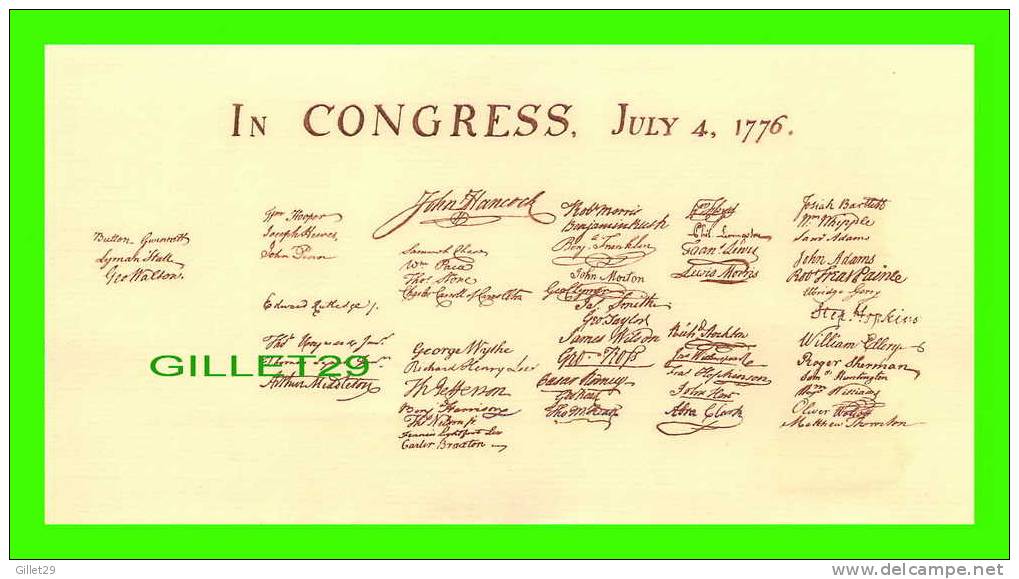 IN CONGRESS, JULY 4, 1776.
Button Gwinnett
Lyman Hall
Geo Walton.
Wm Hooper
Joseph Hewes,
John Penn
Edward Rutledge /.
Thos Heyward Junr.
Arthur Middleton
John Hancock
Samuel Chase
Wm Paca
Thos Stone
Charles Carroll of Carrollton
George Wythe
Richard Henry Lee
Th Jefferson
Benj Harrison
Thos Nelson jr
Francis Lightfoot Lee
Carter Braxton
Robt Morris
Benjamin Rush
Benja Franklin
John Morton
Geo Clymer
Jas Smith
Geo Taylor
James Wilson
Geo. Ross
Caesar Rodney
Geo Read
Tho M:Kean
Phil. Livingston
Frans Lewis
Lewis Morris
Richd Stockton
Jno Witherspoon
Fras Hopkinson
John Hart
Abra Clark
Josiah Bartlett
Wm Whipple
Saml Adams
John Adams
Robt Treat Paine
Elbridge Gerry
Step. Hopkins
William Ellery
Roger Sherman
Saml Huntington
Wm Williams
Oliver Wolcott
Matthew Thornton
GILLET29
Gillet29
www.delcampe.net